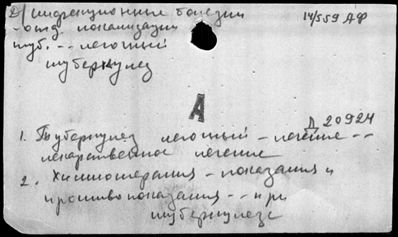 2) инфекционные болезни 14/559 АФ
- отд. локализации
туб. -- легочный
туберкулез
А
Д 20924
1. Туберкулез легочный - лечение --
лекарственное лечение
2. Химиотерапия - показания и
противопоказания -- при
туберкулезе